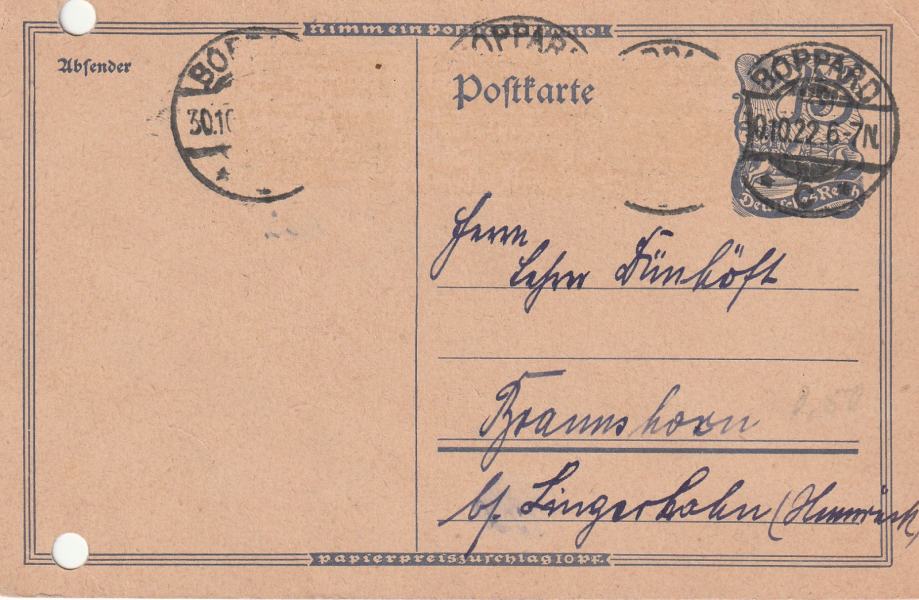 Nimm ein Pos
Absender
BOPPARD
30.10
BOPPARD
Postkarte
BOPPARD
30.10.22.6-7N.
Deutsches Reich
Herrn
Lehrer Dünhöft
Braunshorn
1,50
bf. Lingerhahn (Hunsrück)
Papierpreiszuschlag 10 Pf.